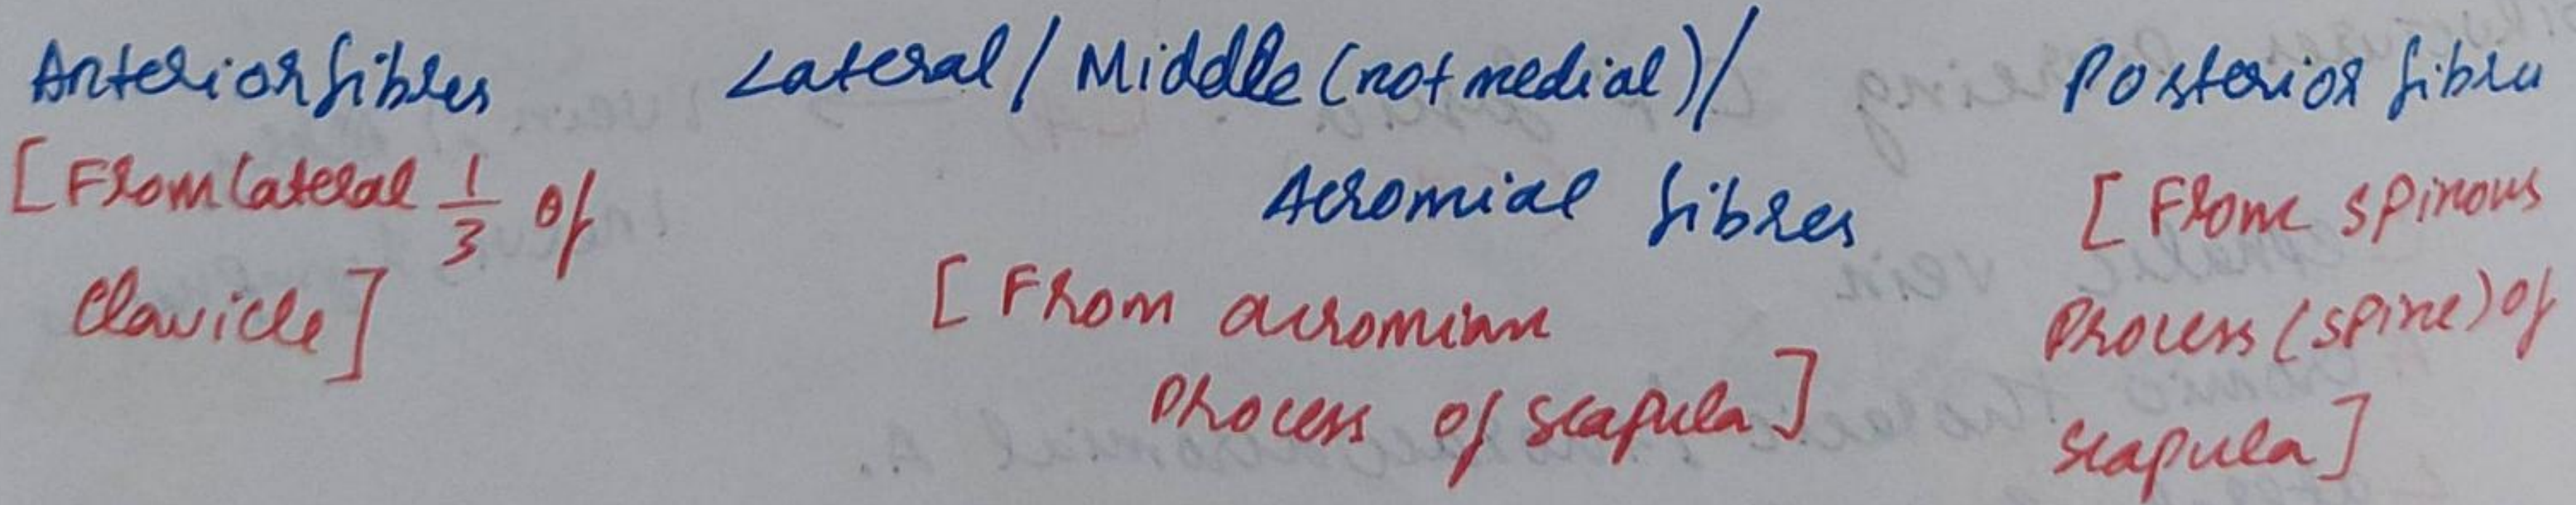 Anterior fibres
[From lateral 1/3 of
clavicle]
Lateral / Middle (not medial) /
Acromial fibres
[From acromian
process of scapula]
Posterior fibres
[From spinous
process (spine) of
scapula]